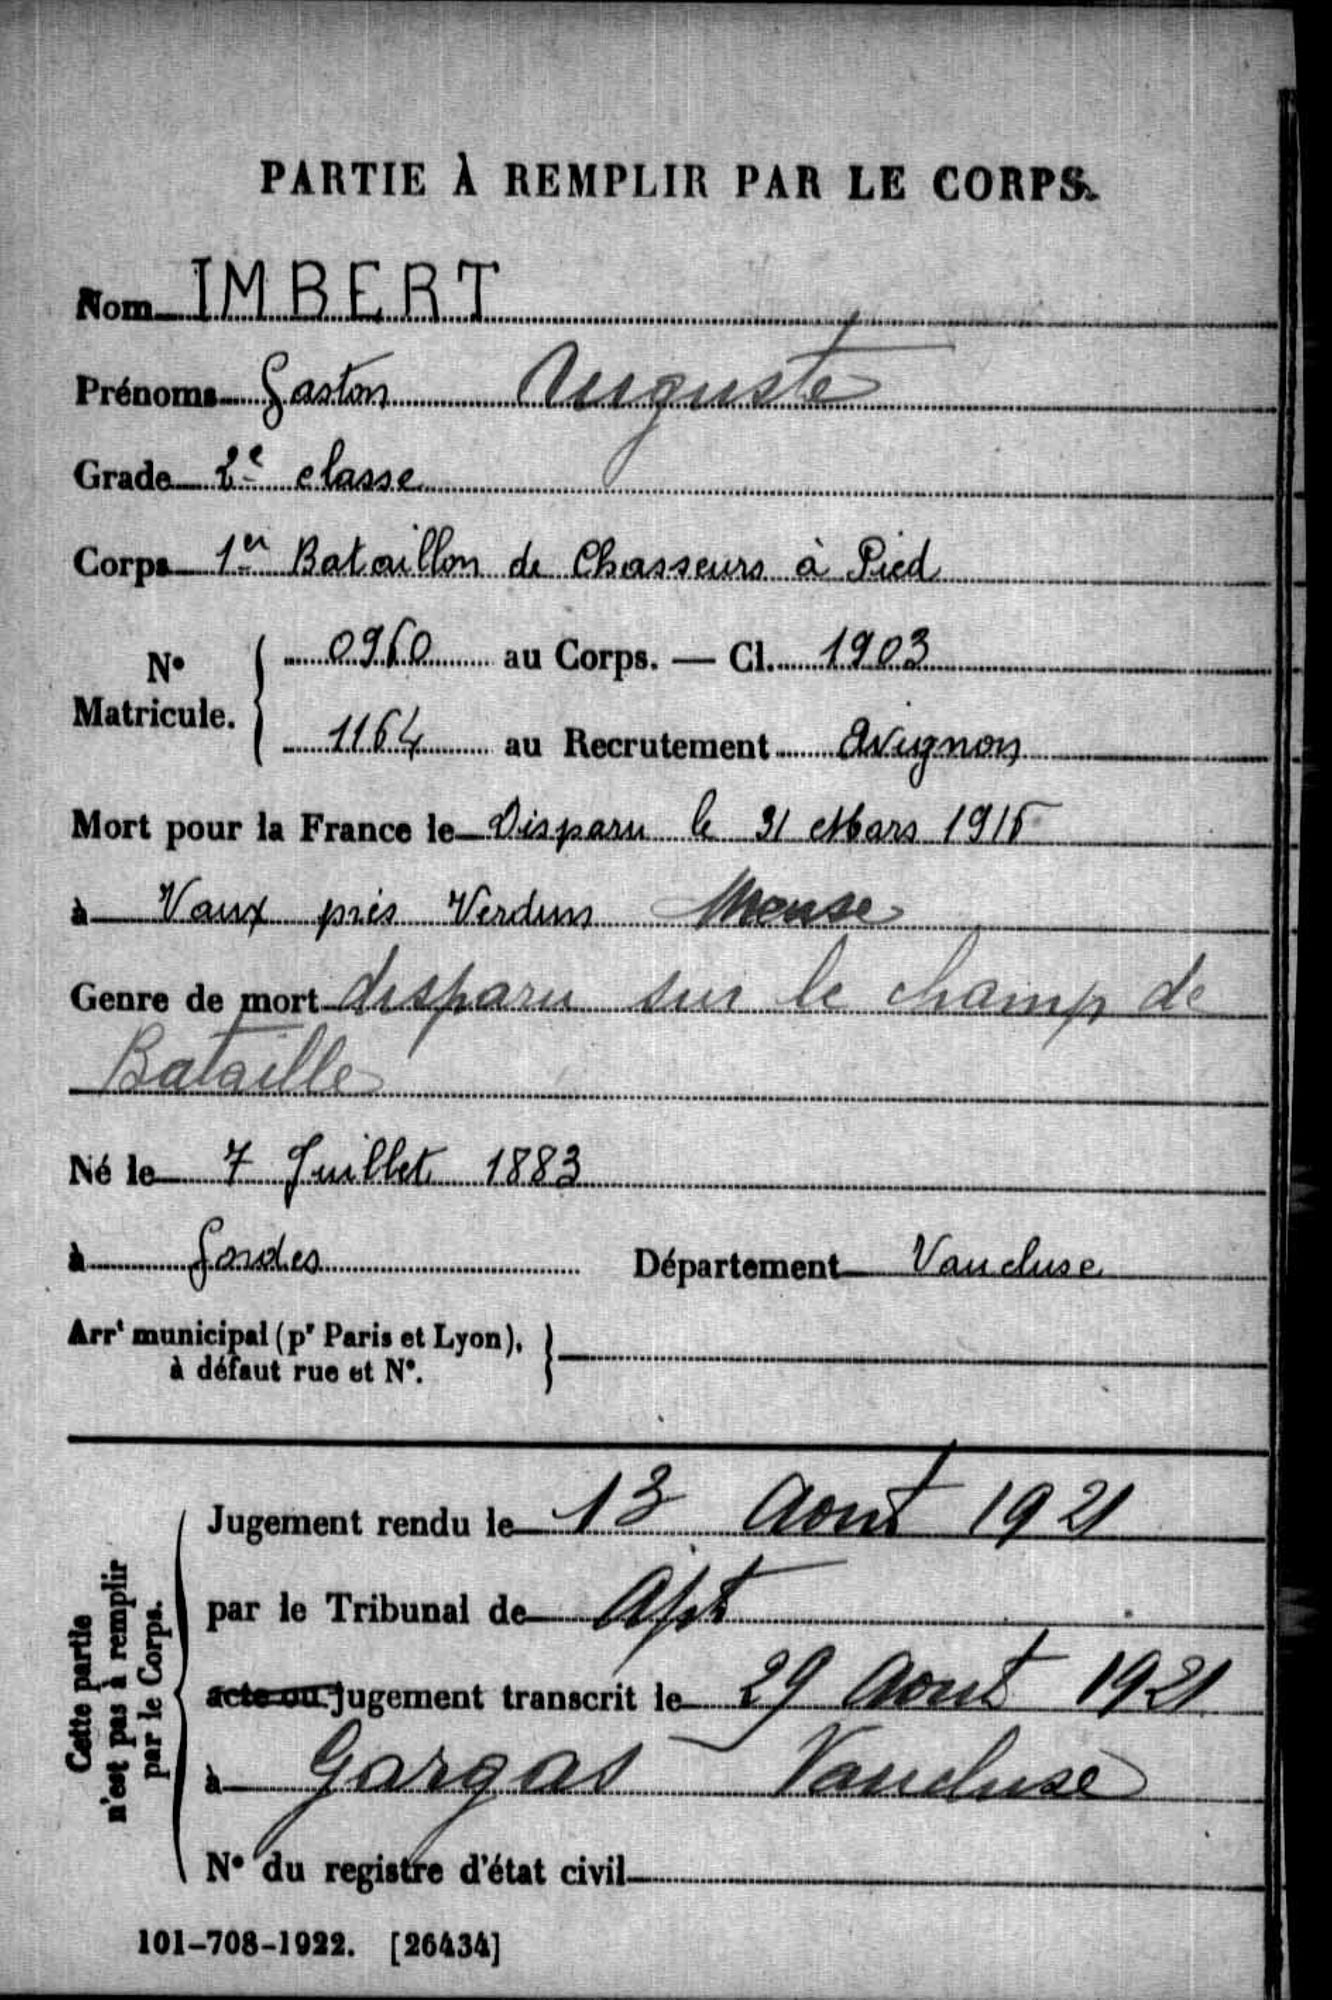 PARTIE À REMPLIR PAR LE CORPS.
Nom IMBERT
Prénoms Gaston Auguste
Grade 2e classe
Corps 1er Bataillon de Chasseurs à Pied
No Matricule. { 0960 au Corps. — Cl. 1903
1164 au Recrutement Avignon
Mort pour la France le Disparu le 31 Mars 1916
à Vaux près Verdun Meuse
Genre de mort disparu sur le champ de
Bataille
Né le 7 Juillet 1883
à Gordes Département Vaucluse
Arrt municipal (pr Paris et Lyon), à défaut rue et No. }
Cette partie n'est pas à remplir par le Corps.
Jugement rendu le 13 Aout 1921
par le Tribunal de Apt
acte ou jugement transcrit le 29 Aout 1921
à Gargas Vaucluse
No du registre d'état civil
101-708-1922. [26434]